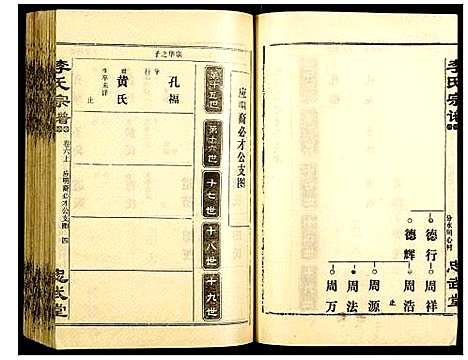 李氏宗谱
分水同心村
忠武堂
德行
周祥
德辉
周浩
止
周源
周法
周万
应明裔必才公支图
第十五世
第十六世
十七世
十八世
十九世
宗华之子
孔福
行
黄氏
生卒未详
止
李氏宗谱
卷六上
应明裔必才公支图
四
忠武堂